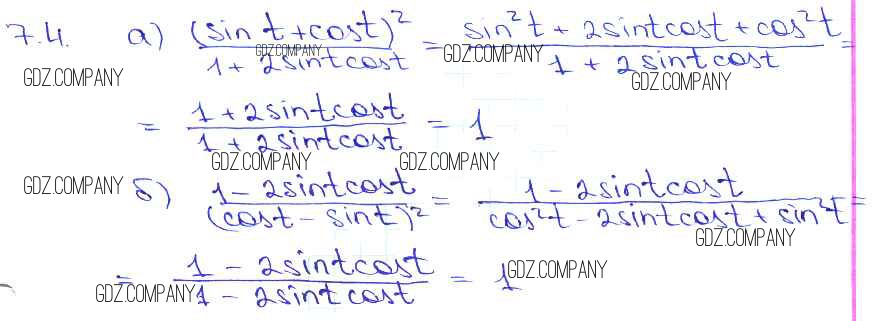 7.4. а) (sin t + cos t)² / 1 + 2sint cost = sin²t + 2sint cost + cos²t / 1 + 2sint cost =
GDZ.COMPANY GDZ.COMPANY GDZ.COMPANY GDZ.COMPANY
= 1 + 2sint cost / 1 + 2sint cost = 1
GDZ.COMPANY GDZ.COMPANY
GDZ.COMPANY б) 1 - 2sint cost / (cost - sint)² = 1 - 2sint cost / cos²t - 2sint cost + sin²t =
GDZ.COMPANY
= 1 - 2sint cost / 1 - 2sint cost = 1 GDZ.COMPANY
GDZ.COMPANY